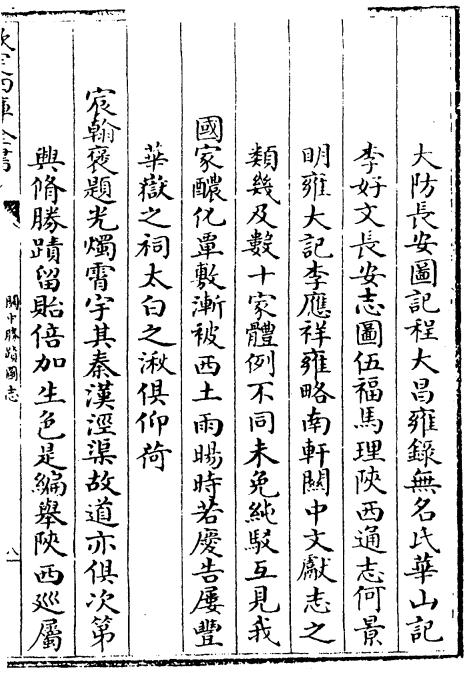 大防長安圖記程大昌雍錄無名氏華山記
李好文長安志圖伍福馬理陜西通志何景
明雍大記李應祥雍略南軒關中文獻志之
類幾及數十家體例不同未免純駁互見我
國家醲化覃敷漸被西土雨暘時若慶告屢豐
華嶽之祠太白之湫俱仰荷
宸翰褒題光燭霄宇其秦漢涇渠故道亦俱次第
興脩勝蹟留貽倍加生色是編舉陜西廵屬
欽定四庫全書
關中勝蹟圖志
八